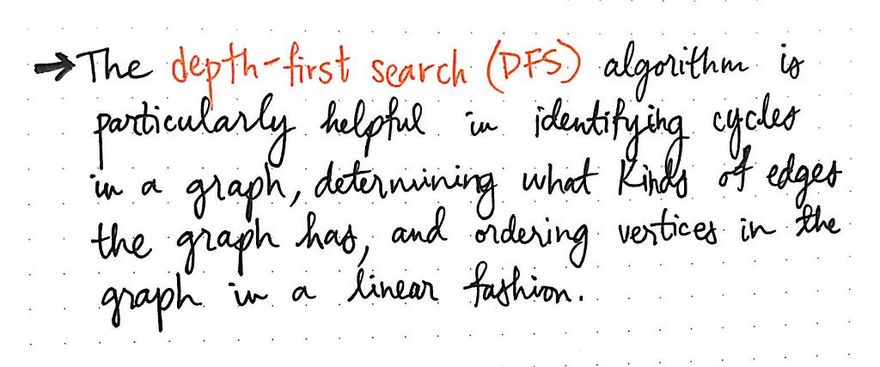 → The depth-first search (DFS) algorithm is
particularly helpful in identifying cycles
in a graph, determining what kinds of edges
the graph has, and ordering vertices in the
graph in a linear fashion.